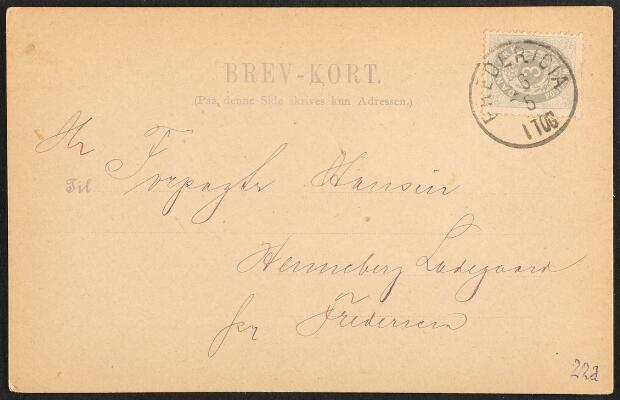 BREV-KORT.
(Paa denne Side skrives kun Adressen.)
FREDERICIA
6
I TOG
3
Hr Forpagter Hansen
Til
Henneberg Ladegaard
pr Fredericia
22a